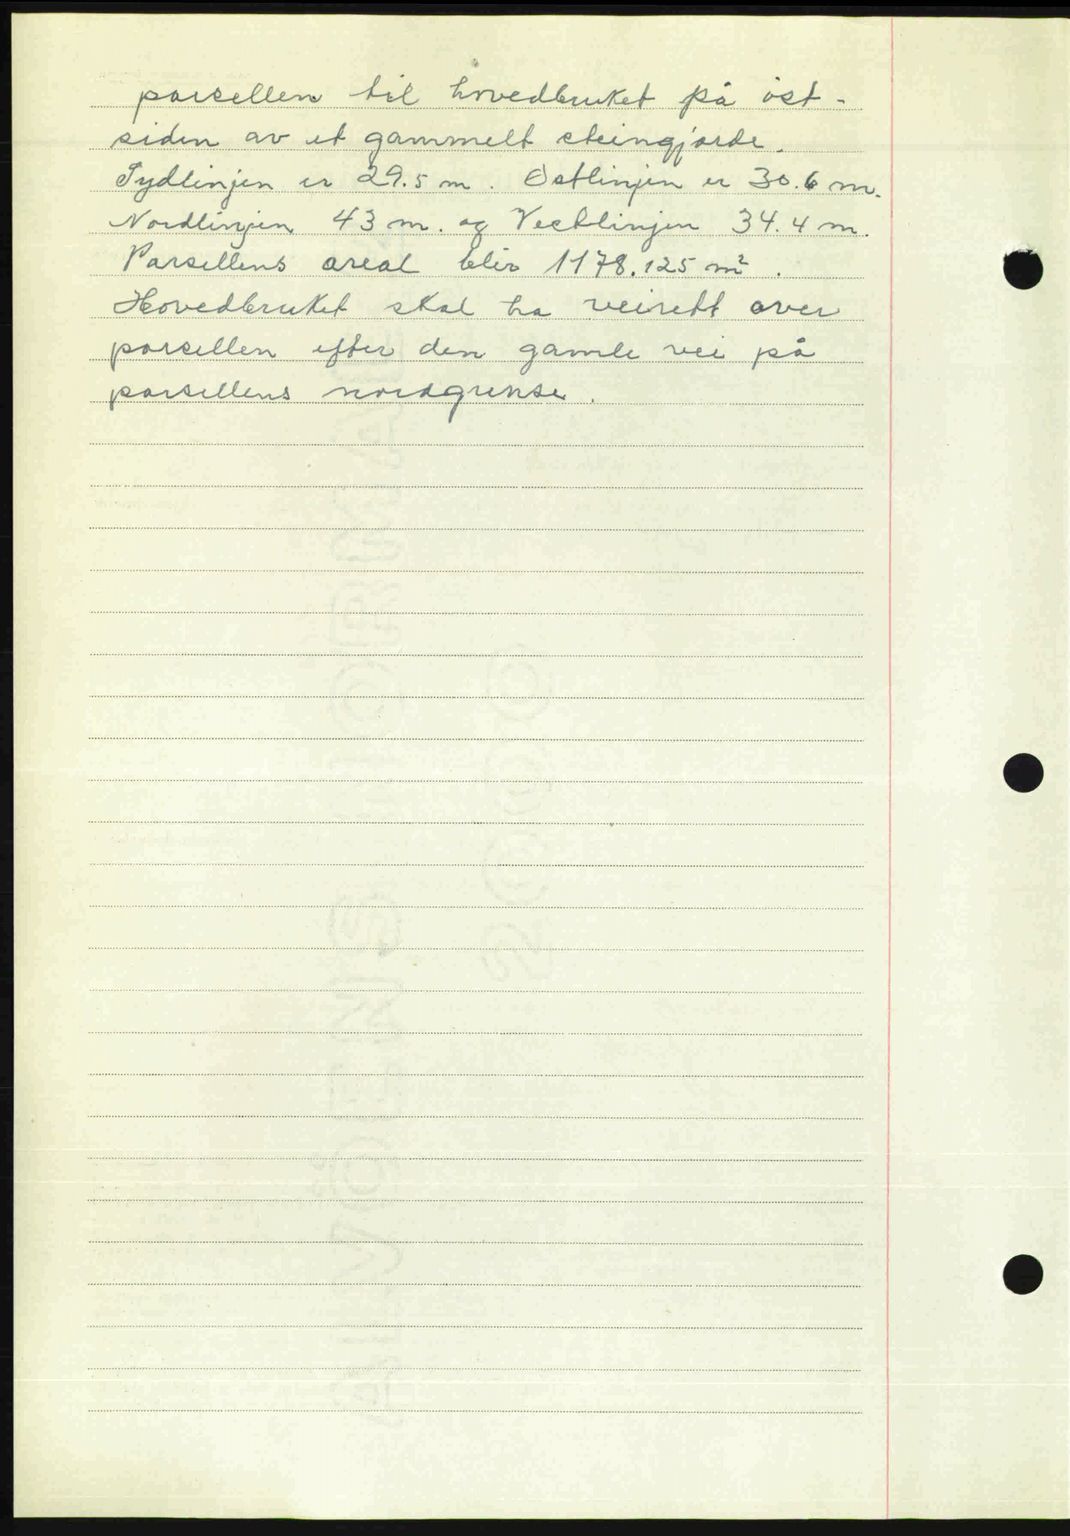 parsellen til hovedbruket på öst-
siden av et gammelt steingjærde.
Sydlinjen er 29.5 m. Østlinjen er 30.6 m.
Nordlinjen 43 m. og Vestlinjen 34.4 m.
Parsellens areal blir 1178.125 m².
Hovedbruket skal ha veirett over
parsellen efter den gamle vei på
parsellens nordgrense.